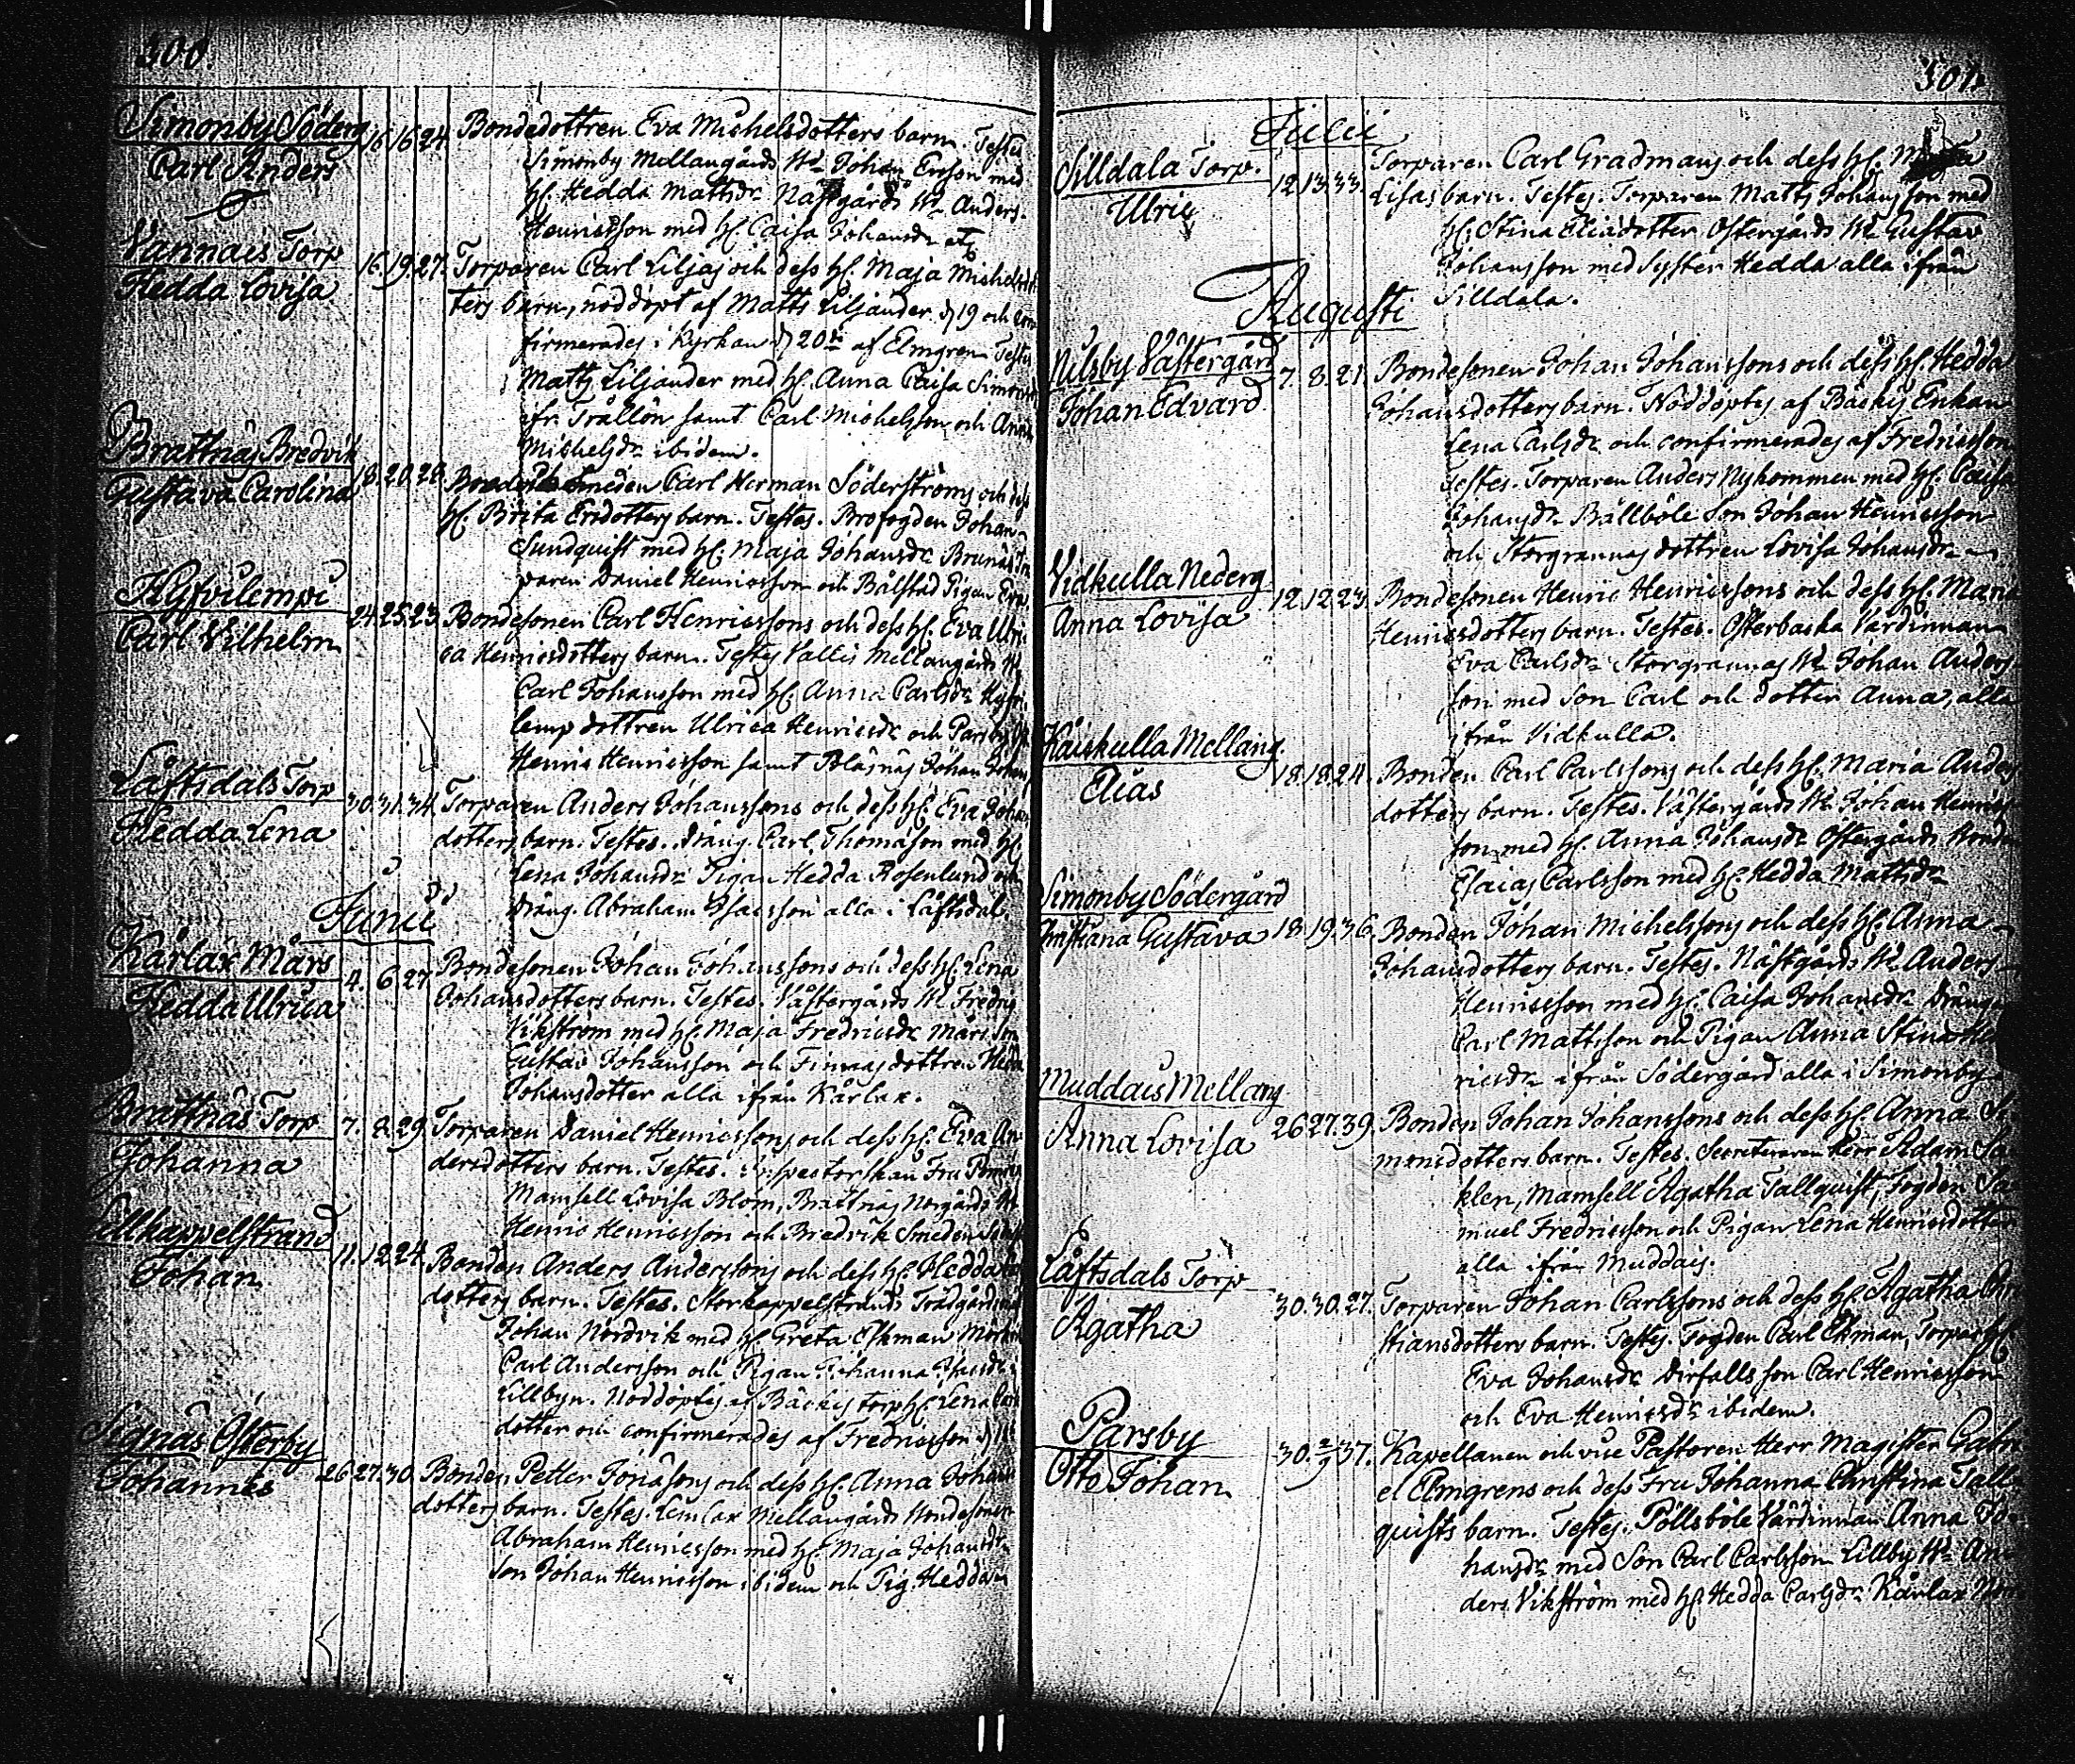 300.
Simonby Söderg
Carl Anders
16 16 24 Bondedottren Eva Michelsdotters barn. Testes
Simonby Mellangårds Wd Johan Ersson med
hu. Hedda Mattsdr Nästgårds Wd Anders
Henricsson med hu Caisa Johansdr etc
Vannais Torp
Hedda Lovisa
16. 19. 27. Torparen Carl Liljas och dess hu. Maja Michelsdot
ters barn, nöddöpt af Matts Liljander d 19 och con
firmerades i Kyrkan d 20de af Elmgren Testes
Matts Liljander med hu. Anna Caisa
ifr. Trällön samt Carl Michelsson och Anna
Michelsdr ibidem.
Brattnäs Bredvik
Gustava Carolina
18. 20. 28. Smeden Carl Herman Söderströms och dess
hu. Brita Ersdotters barn. Testes. Brofogden Johan
Sundquist med hu. Maja Johansdr
paren Daniel Henricsson och Bålstad Pigan Eva
Hyfvilempi
Carl Vilhelm
24. 25. 23 Bondesonen Carl Henricssons och dess hu. Eva Ulri
ca Henricsdotters barn. Testes Vallis Mellangårds Wd
Carl Johansson med hu. Anna Carlsdr Hyfvi
lemp dottren Ulrica Henricsdr och
Henric Henricsson samt Blåsnäs Johan
Låftsdals Torp
Hedda Lena
30. 31. 34. Torparen Anders Johanssons och dess hu Eva Johans
dotters barn. Testes. dräng. Carl Thomasson med hu.
Lena Johansdr Pigan Hedda Rosenlund och
dräng. Abraham alla i Låftsdal.
Junii
Kårlax Mårs
Hedda Ulrica
4. 6. 27 Bondesonen Johan Johanssons och dess hu. Lena
Johansdotters barn. Testes. Västergårds Wd Fredric
Vikström med hu. Maja Fredricsdr Mårs Son
Gustav Johansson och Finnas dottren Hedda
Johansdotter alla ifrån Kårlax.
Brattnäs Torp
Johanna
7. 8. 29. Torparen Daniel Henricssons och dess hu. Eva An
dersdotters barn. Testes. Inspectorskan Fru
Mamsell Lovisa Blom, Brattnäs Norgårds Wd
Henric Henricsson och Bredvik Smeden
Lillkappelstrand
Johan
11. 12 24. Bonden Anders Anderssons och dess hu. Hedda
dotters barn. Testes. Storkappelstrands Trädgårdsm
Johan Nordvik med hu Greta Ekman
Carl Andersson och Pigan Johanna
Lillbyn. Nöddöptes af Bäckis torp hu. Lena Carls
dotter och confirmerades af Fredricsson
Signäs Österby
Johannes
26 27. 30. Bonden Petter Jonassons och dess hu. Anna Johans
dotters barn. Testes. Lemlax Mellangårds Bondesonen
Abraham Henricsson med hu. Maja Johansdr
son Johan Henricsson ibidem och Pig. Hedda
301.
Julii
Silldala Torp.
Ulric
12 13. 33. Torparen Carl Gradmans och dess hu.
Lisas barn. Testes. Torparen Matts Johansson med
hu. Stina Eliædotter Östergårds Wd Gustav
Johansson med Syster Hedda alla ifrån
Silldala.
Augusti
Nilsby Västergård
Johan Edvard
7. 8. 21. Bondesonen Johan Johanssons och dess hu. Hedda
Johansdotters barn. Nöddöptes af Bäckis Enkan
Lena Carlsdr och confirmerades af Fredricsson
Testes. Torparen Anders Nykommen med hu. Caisa
Johansdr Bällböle Son Johan Henricsson
och Storgrannas dottren Lovisa Johansdr
Vidkulla Nederg
Anna Lovisa
12. 12. 23. Bondesonen Henric Henricssons och dess hu. Maria
Henricsdotters barn. Testes. Österbacka Värdinnan
Eva Carlsdr Storgrannas Wd Johan Anders
son med son Carl och dotter Anna, alla
ifrån Vidkulla.
Kaiskulla Mellang.
Elias
18. 18. 24. Bonden Carl Carlssons och dess hu. Maria Anders
dotters barn. Testes. Västergårds Wd Johan Henrics
son med hu. Anna Johansdr Östergårds Bond
Esaias Carlsson med hu. Hedda Mattsdr
Simonby Södergård
Christiana Gustava
18. 19. 36. Bonden Johan Michelssons och dess hu. Anna
Johansdotters barn. Testes. Nästgårds Wd Anders
Henricsson med hu. Caisa Johansdr dräng
Carl Mattsson och Pigan Anna Stina Hen
ricsdr ifrån Södergård alla i Simonby
Muddais Mellang
Anna Lovisa
26 27. 39. Bonden Johan Johanssons och dess hu. Anna Si
monsdotters barn. Testes. Secreteraren Herr Adam Sa
klen, Mamsell Agatha Tallquist, Fogden Sa
muel Fredricsson och Pigan Lena Henricsdotter
alla ifrån Muddais.
Låftsdals Torp
Agatha
30. 30. 27. Torparen Johan Carlssons och dess hu. Agatha Chri
stiansdotters barn. Testes. Fogden Carl Ekman, Torpar hu.
Eva Johansdr Dirfalls son Carl Henricsson
och Eva Henricsdr ibidem.
Parsby
Otto Johan
30. 2/9 37. Kapellanen och vice Pastoren Herr Magister Gabri
el Elmgrens och dess Fru Johanna Christina Tall
quists barn. Testes. Pöllsböle Värdinnan Anna Jo
hansdr med Son Carl Carlsson Lillby Wd An
ders Vikström med hu. Hedda Carlsdr Kårlax